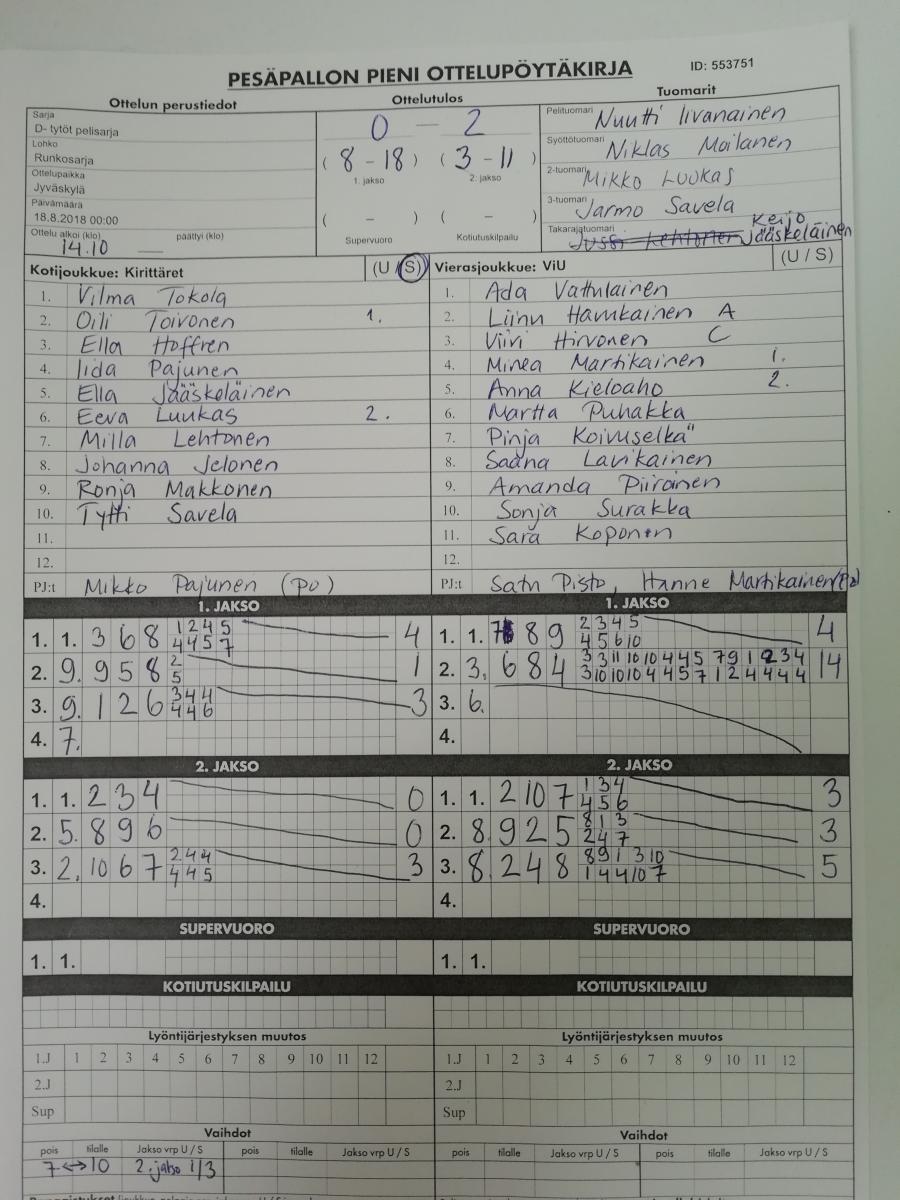 PESÄPALLON PIENI OTTELUPÖYTÄKIRJA
ID: 553751
Ottelun perustiedot
Ottelutulos
Tuomarit
Sarja
D- tytöt pelisarja
Lohko
Runkosarja
Ottelupaikka
Jyväskylä
Päivämäärä
18.8.2018 00:00
Ottelu alkoi (klo) päättyi (klo)
14.10
0 — 2
( 8 - 18 ) ( 3 - 11 )
1. jakso 2. jakso
( - ) ( - )
Supervuoro Kotiutuskilpailu
Pelituomari Nuutti Iivanainen
Syöttötuomari Niklas Moilanen
2-tuomari Mikko Luukas
3-tuomari Jarmo Savela
Takarajatuomari Jussi Lehtonen Keijo Jääskeläinen
Kotijoukkue: Kirittäret (U / S)
1. Vilma Tokola
2. Oili Toivonen 1.
3. Ella Hoffren
4. Iida Pajunen
5. Ella Jääskeläinen
6. Eeva Luukas 2.
7. Milla Lehtonen
8. Johanna Jelonen
9. Ronja Makkonen
10. Tytti Savela
11.
12.
PJ:t Mikko Pajunen (po)
Vierasjoukkue: ViU (U / S)
1. Ada Vattulainen
2. Liinu Hämäkainen A
3. Viivi Hirvonen C
4. Minea Martikainen 1.
5. Anna Kieloaho 2.
6. Martta Puhakka
7. Pinja Koivuselkä
8. Saana Lavikainen
9. Amanda Piiroinen
10. Sonja Surakka
11. Sara Koponen
12.
PJ:t Satu Pisto, Hanne Martikainen
1. JAKSO
1. 1. 3 6 8 1 2 4 5 4
4 4 5 7
2. 9. 9 5 8 2 1
5
3. 9. 1 2 6 3 4 4 3
4 4 6
4. 7.
1. JAKSO
1. 1. 8 9 2 3 4 5 4
4 5 6 10
2. 3. 6 8 4 3 3 11 10 10 4 4 5 7 9 1 2 3 4 14
3 10 10 10 4 4 5 7 1 2 4 4 4 4
3. 6.
4.
2. JAKSO
1. 1. 2 3 4 0
2. 5. 8 9 6 0
3. 2. 10 6 7 2 4 4 3
4 4 5
4.
2. JAKSO
1. 1. 2 10 7 1 3 4 3
4 5 6
2. 8. 9 2 5 8 1 3 3
2 4 7
3. 8. 2 4 8 8 9 1 3 10 5
1 4 4 10 7
4.
SUPERVUORO
1. 1.
SUPERVUORO
1. 1.
KOTIUTUSKILPAILU
KOTIUTUSKILPAILU
Lyöntijärjestyksen muutos
1.J 1 2 3 4 5 6 7 8 9 10 11 12
2.J
Sup
Lyöntijärjestyksen muutos
1.J 1 2 3 4 5 6 7 8 9 10 11 12
2.J
Sup
Vaihdot
pois tilalle Jakso vrp U / S pois tilalle Jakso vrp U / S
7 ↔ 10 2. jakso 1/3
Vaihdot
pois tilalle Jakso vrp U / S pois tilalle Jakso vrp U / S